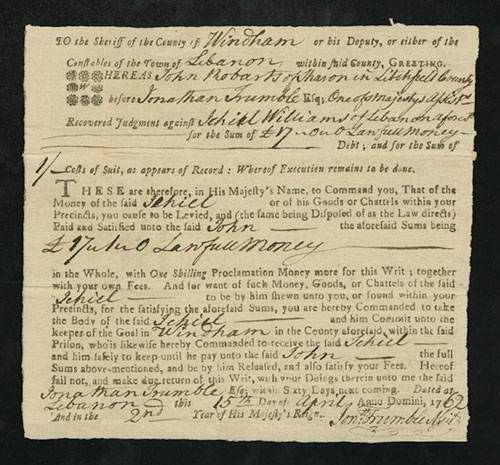 TO the Sheriff of the County of Windham or his Deputy, or either of the
Constables of the Town of Lebanon within said County, GREETING.
WHEREAS John Robarts of Sharon in Litchfield County
before Jonathan Trumble Esq; One of his Majestys Assist
Recovered Judgment against Jehiel Williams of Lebanon afores
for the Sum of £17 0 0 Lawfull Money
Debt; and for the Sum of
1/— Costs of Suit, as appears of Record: Whereof Execution remains to be done.
THESE are therefore, in His Majesty's Name, to Command you, That of the
Money of the said Jehiel or of his Goods or Chattels within your
Precincts, you cause to be Levied, and (the same being Disposed of as the Law directs)
Paid and Satisfied unto the said John the aforesaid Sums being
£17 1 0 Lawfull Money
in the Whole, with One Shilling Proclamation Money more for this Writ; together
with your own Fees. And for want of such Money, Goods, or Chattels of the said
Jehiel to be by him shewn unto you, or found within your
Precincts, for the satisfying the aforesaid Sums, you are hereby Commanded to take
the Body of the said Jehiel and him Commit unto the
keeper of the Goal in Windham in the County aforesaid, within the said
Prison, who is likewise hereby Commanded to receive the said Jehiel
and him safely to keep until he pay unto the said John the full
Sums above-mentioned, and be by him Released, and also satisfy your Fees. Hereof
fail not, and make due return of this Writ, with your Doings therein unto me the said
Jonathan Trumble Esq; within Sixty Days next coming. Dated at
Lebanon this 15th Day of April Anno Domini, 1762
And in the 2nd Year of His Majesty's Reign. Jonth Trumble Assist